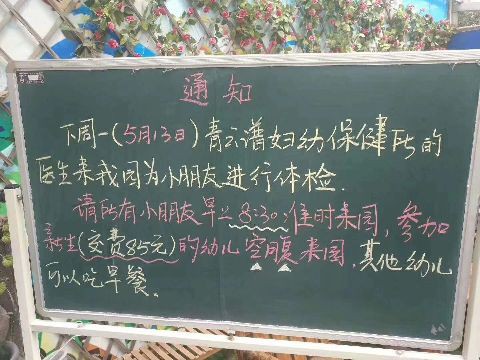 通知
下周一(5月13日)青云谱妇幼保健所的
医生来我园为小朋友进行体检.
请所有小朋友早上8:30准时来园,参加
(交费85元)的幼儿空腹来园,其他幼儿
可以吃早餐。